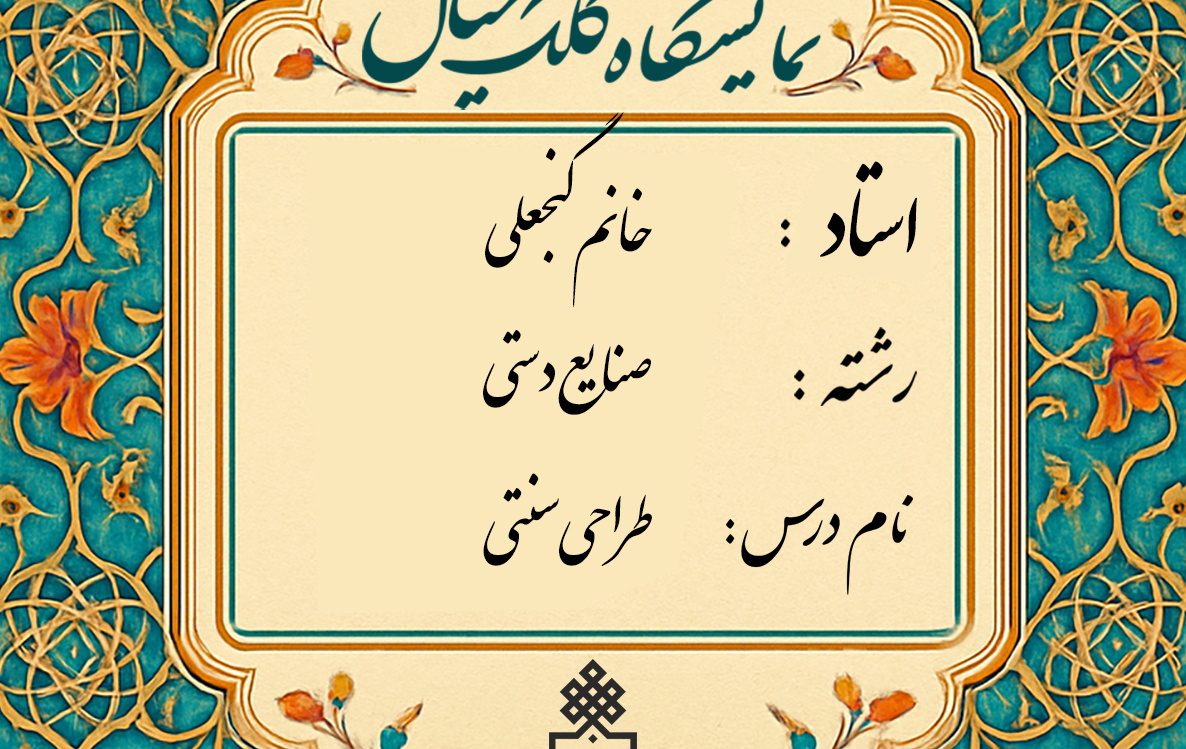 نمایشگاه کلک خیال
استاد : خانم گنجعلی
رشته : صنایع دستی
نام درس: طراحی سنتی